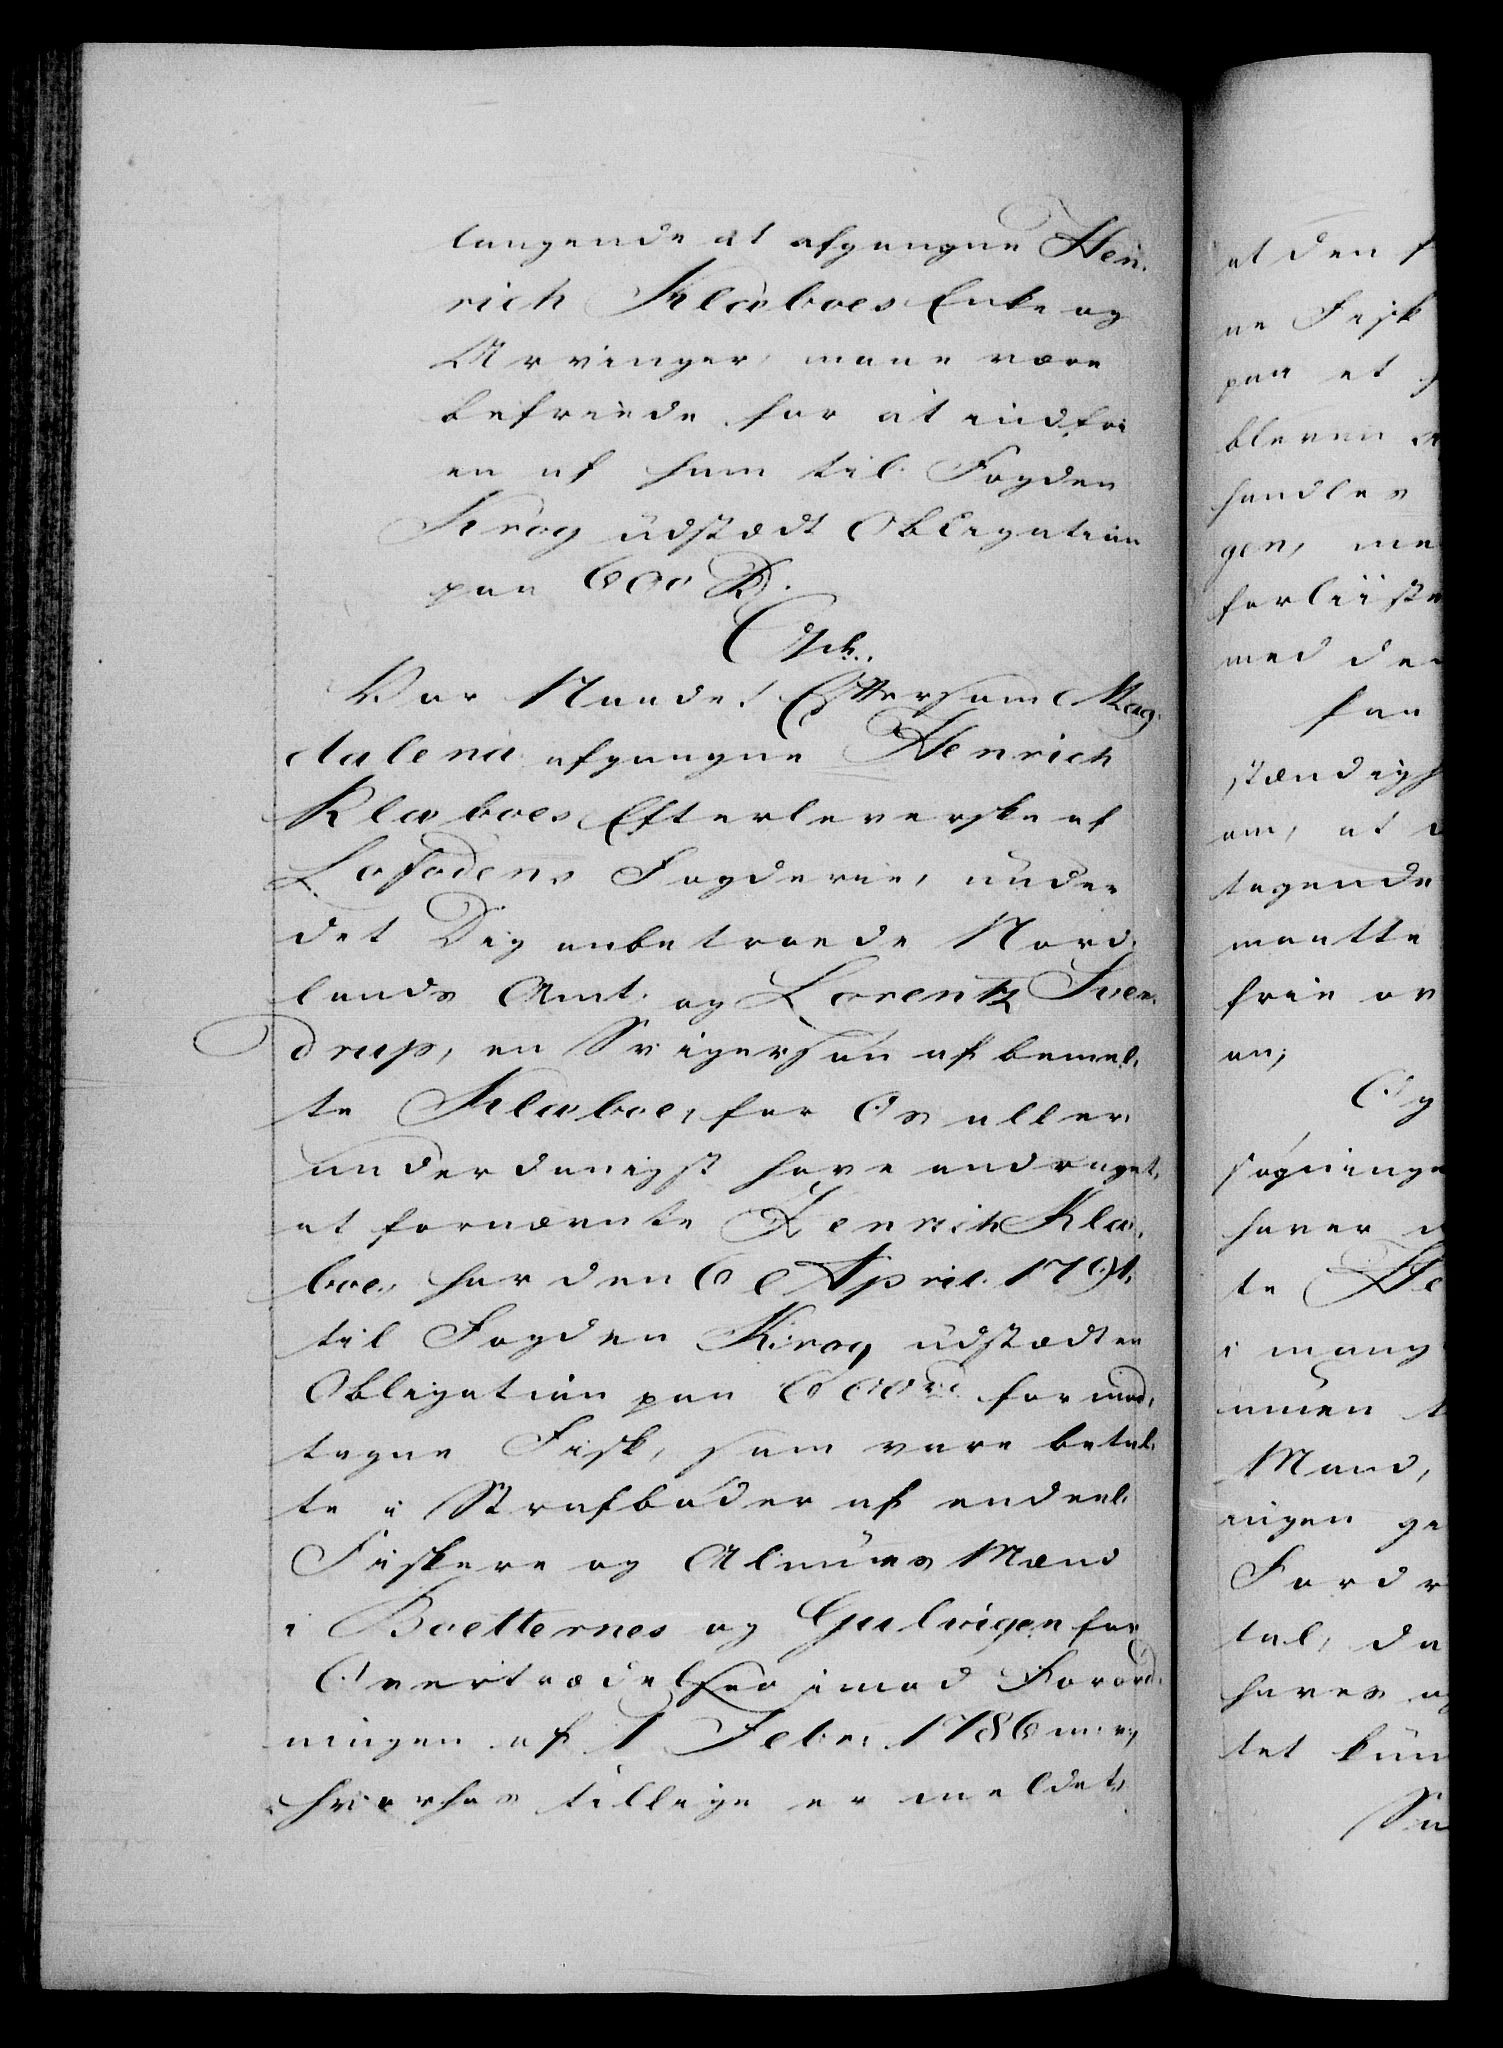 langende at afgangne Hen-
rich Klæboes Enke og
Arvinger, maae være
befriede for at indfrie
en af ham til Fogden
Krog udstædt Obligation
paa 600 Rd.
Vor Naade! Eftersom Mag-
dalena afgangne Henrich
Klæboes Efterleverske af
Lofodens Fogderie, under
det Dig anbetroede Nord-
lands Amt, og Lorentz Sver-
drup, en Svigersøn af bemel-
te Klæboe, for Os aller-
underdanigst have andraget,
at fornævnte Henrich Klæ-
boe, har den 6 April 1791.
til Fogden Krog udstædt en
Obligation paa 600 rd. for mod-
tagne Fisk, som vare betal-
te i Strafbøder af endeel
Fiskere og Almues Mænd
i Boetternes og Gulvigen for
Overtrædelser imod Forord-
ningen af 1 Febr. 1786 m. v.,
hvorhos tillige er meldet,
at den f
ne Fisk
paa et
bleven
handles
gen, me
forliiste
med de
faa
stændigh
om, at
tagende
maatte
frie or
an;
Og
søgninge
haver d
te He
i mang
Mand,
ingen ge
Fordr
tal, da
haves o
tet kun
Saa